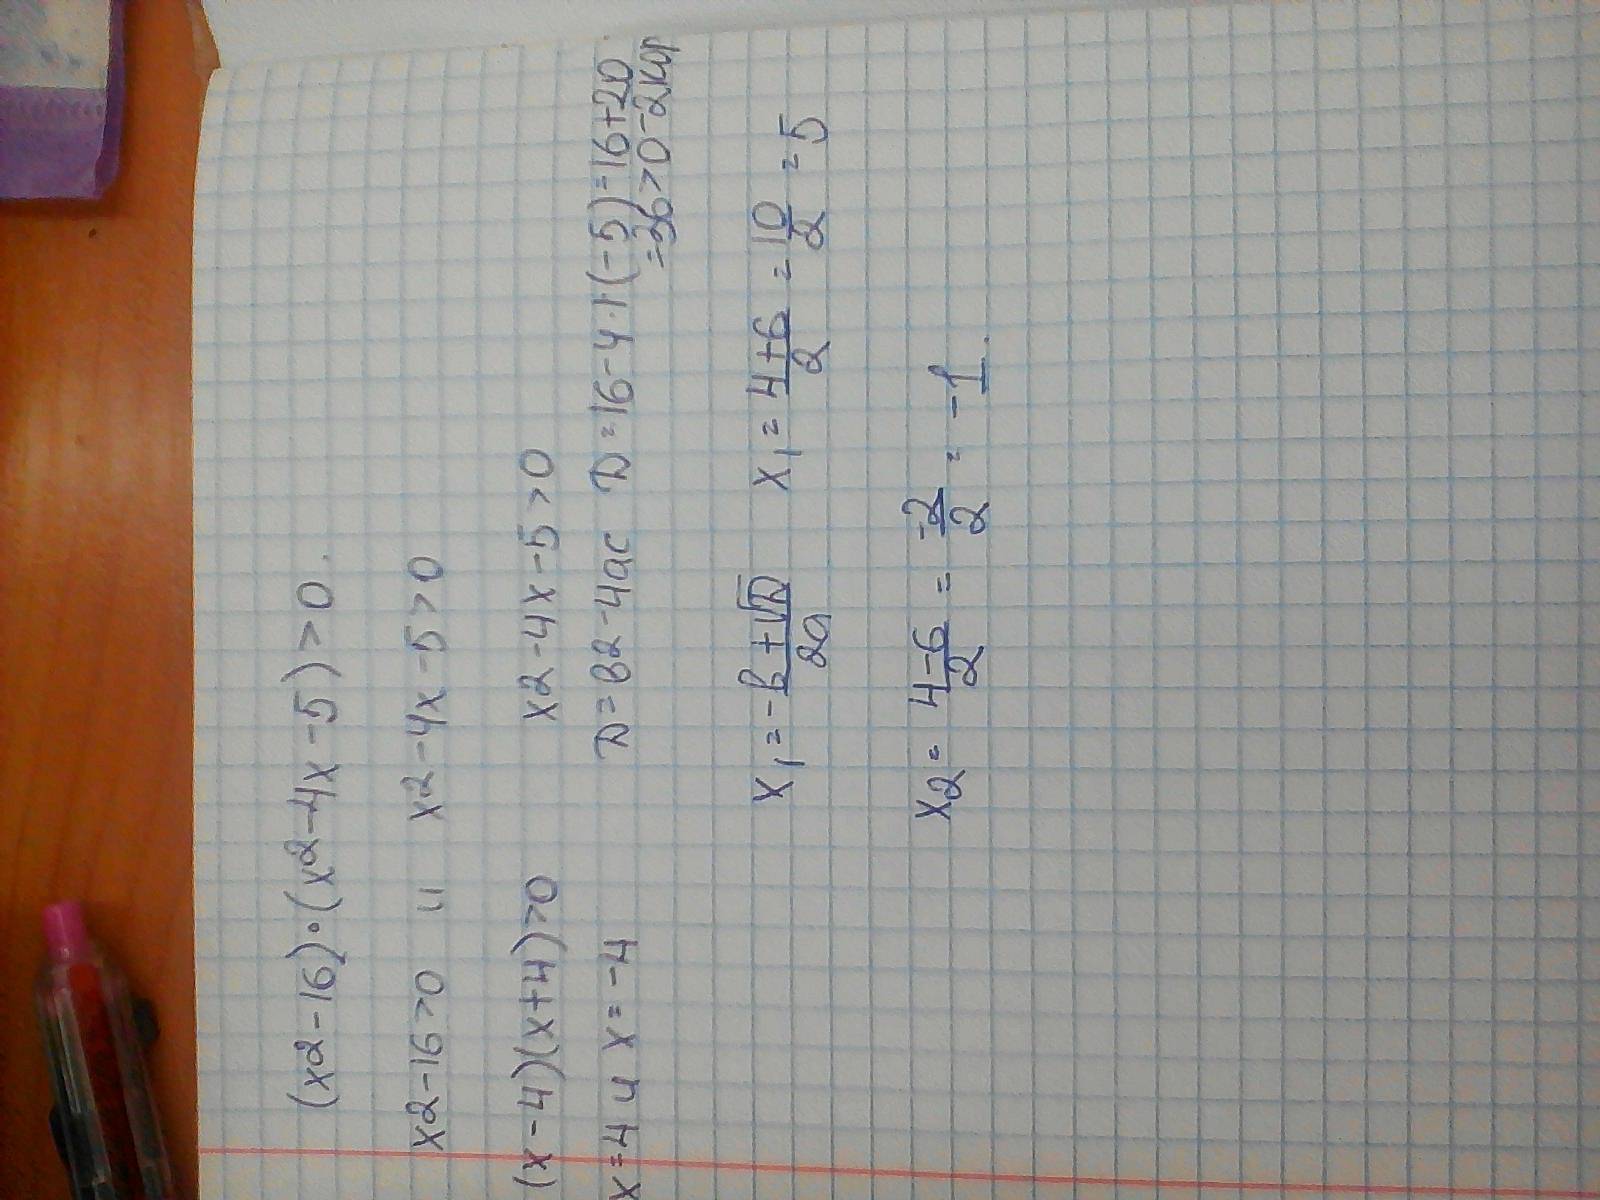 (x2-16)·(x2-4x-5)>0.
x2-16>0 и x2-4x-5>0
(x-4)(x+4)>0 x2-4x-5>0
x=4 и x=-4 D=в2-4ac D=16-4·1(-5)=16+20
=36>0-2кор
x1=-в+√D/2a x1=4+6/2=10/2=5
x2=4-6/2=-2/2=-1.